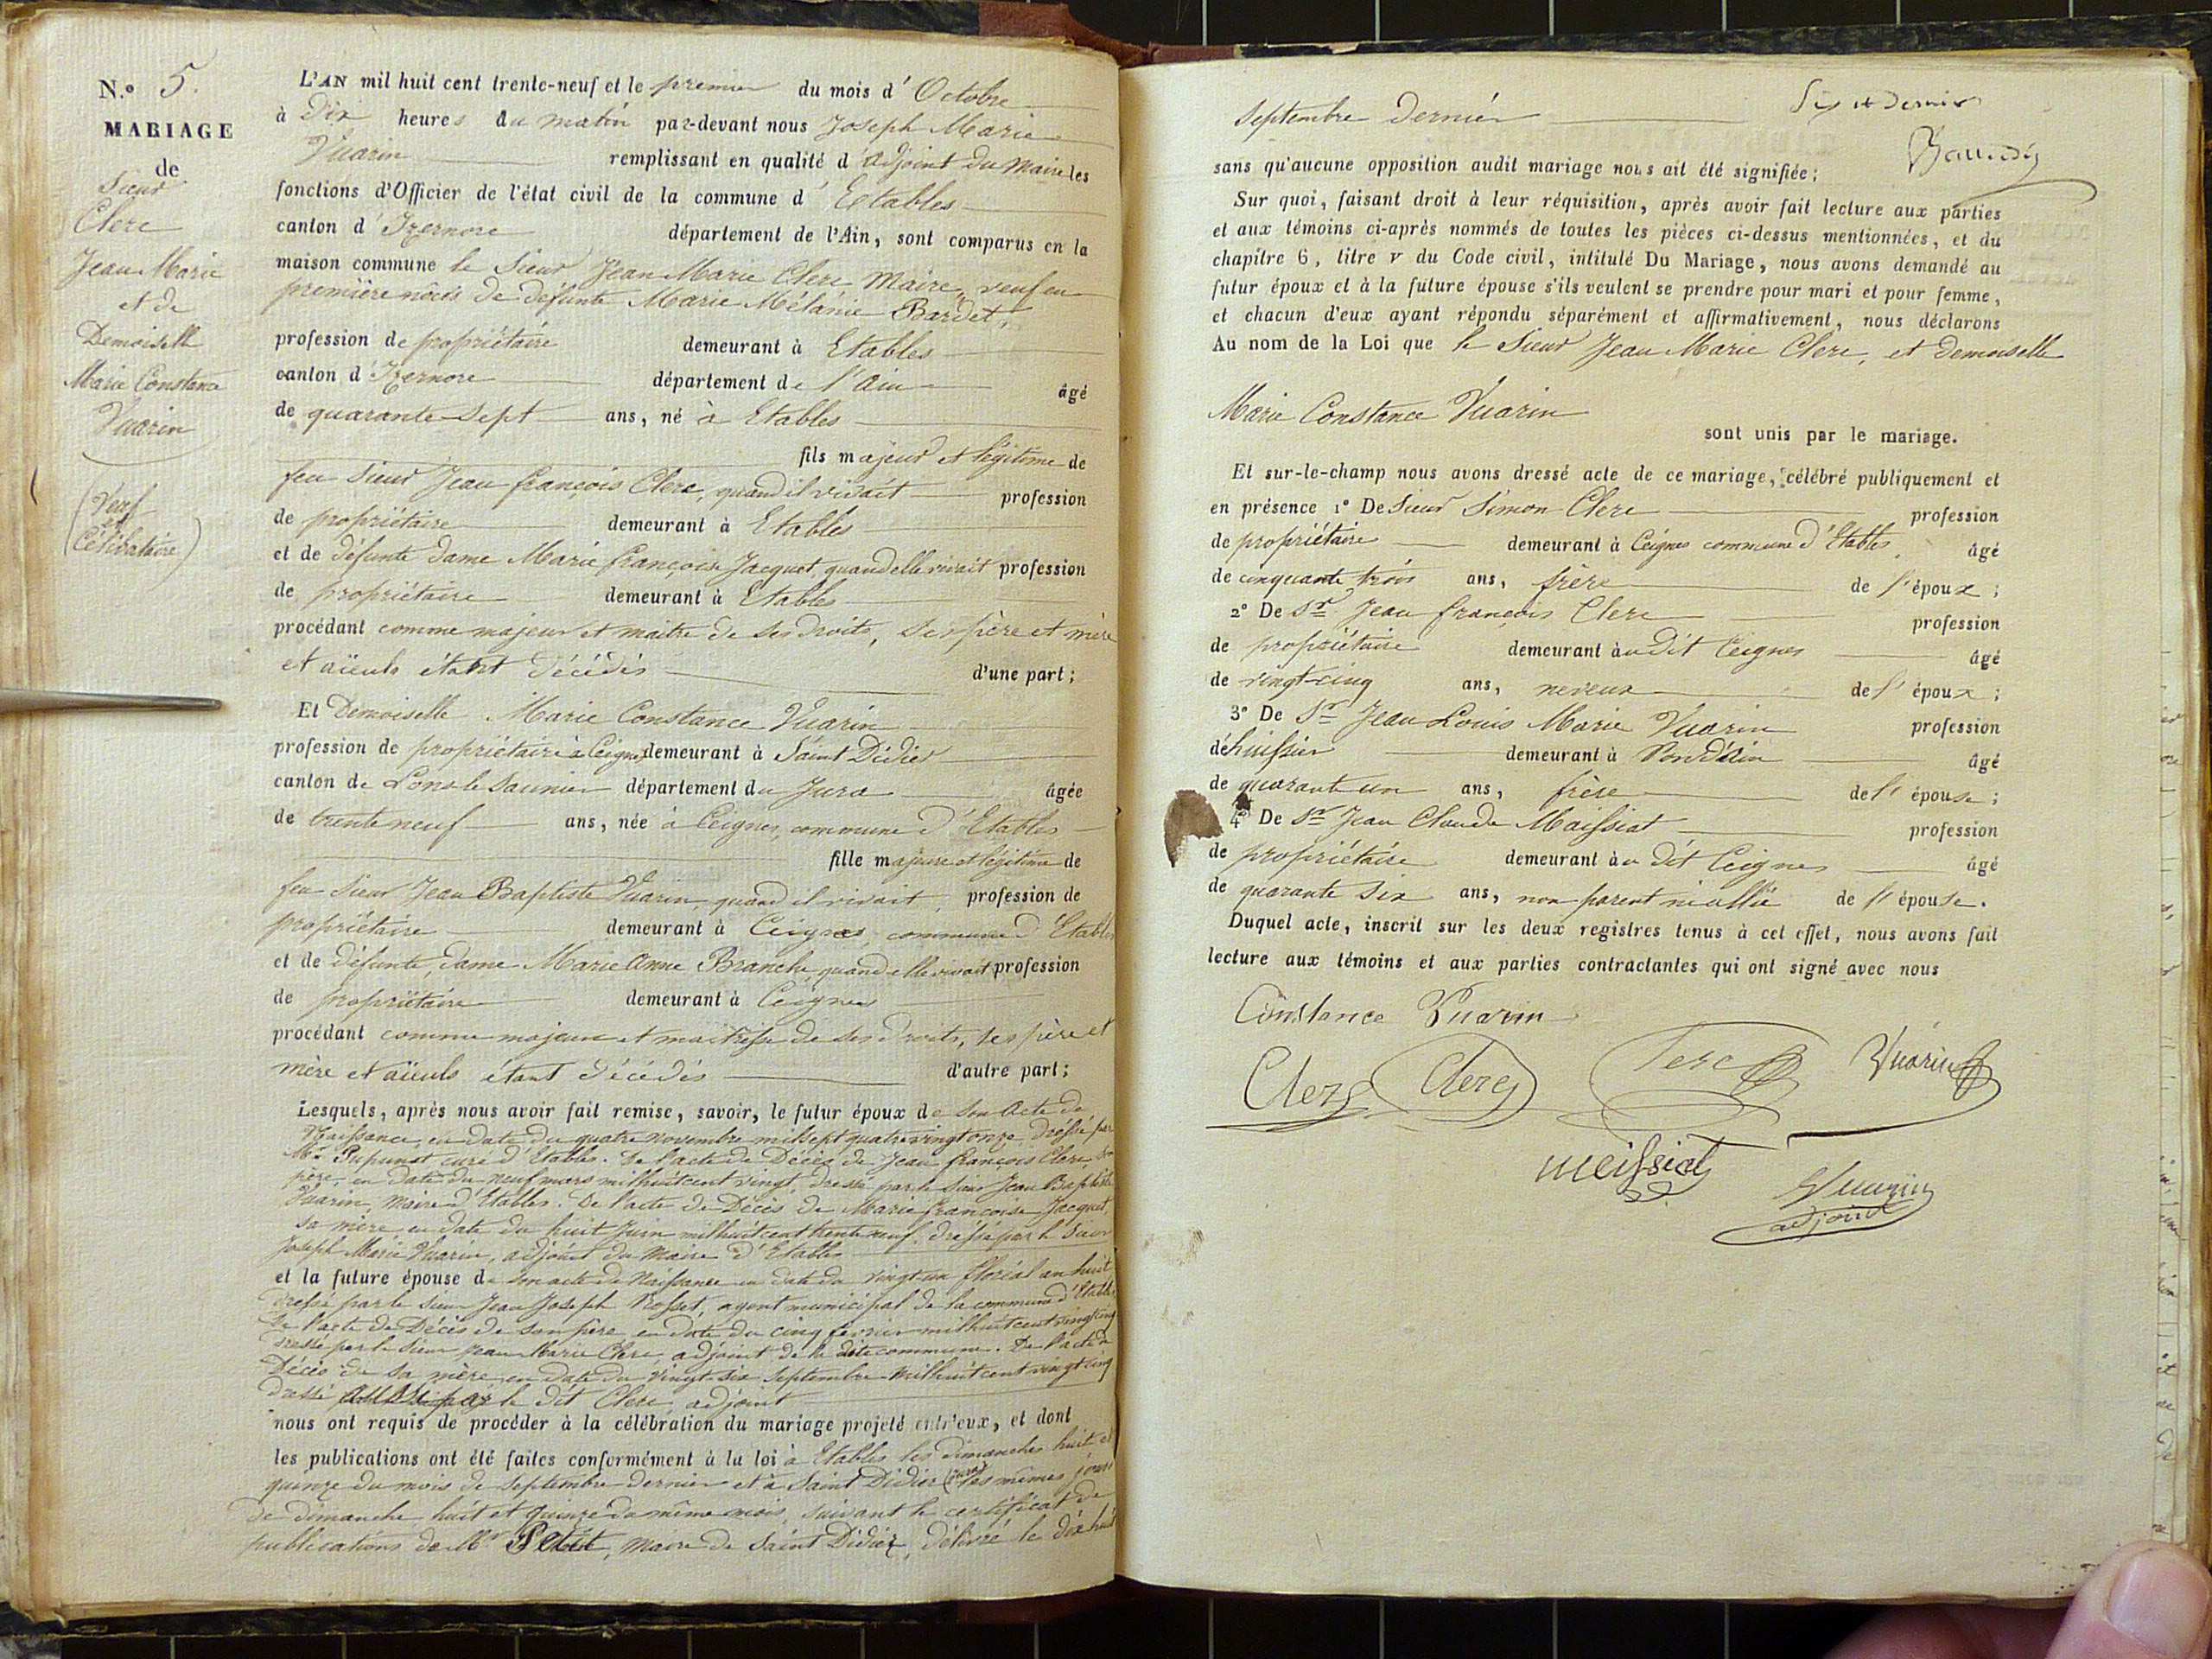 N.º 5.
MARIAGE
de
Sieur
Clerc
Jean Marie
et de
Demoiselle
Marie Constance
Vuarin
(Veuf
et
Célibataire)
L'AN mil huit cent trente-neuf et le premier du mois d'Octobre
à Dix heures du matin par-devant nous Joseph Marie
Vuarin remplissant en qualité d'adjoint du Maire les
fonctions d'Officier de l'état civil de la commune d'Etables
canton d'Izernore département de l'Ain, sont comparus en la
maison commune le Sieur Jean Marie Clerc Maire, veuf en
première nôces de défunte Marie Mélanie Bardet,
profession de propriétaire demeurant à Etables
canton d'Izernore département de l'Ain âgé
de quarante-sept ans, né à Etables
fils majeur et légitime de
feu Sieur Jean françois Clerc, quand il vivait profession
de propriétaire demeurant à Etables
et de défunte dame Marie françoise Jacquet, quand elle vivait profession
de propriétaire demeurant à Etables
procédant comme majeur et maitre de ses droits, ses père et mère
et aïeuls étant décédés d'une part;
Et Demoiselle Marie Constance Vuarin
profession de propriétaire à Ceignes demeurant à Saint Didier
canton de Lons le Saunier département du Jura âgée
de trente neuf ans, née à Ceignes, commune d'Etables
fille majeure et légitime de
feu Sieur Jean Baptiste Vuarin, quand il vivait, profession de
propriétaire demeurant à Ceignes, commune d'Etables
et de défunte, dame Marie Anne Branche, quand elle vivait profession
de propriétaire demeurant à Ceignes
procédant comme majeure et maitresse de ses droits, ses père et
mère et aïeuls étant décédés d'autre part;
Lesquels, après nous avoir fait remise, savoir, le futur époux de son acte de
Naissance, en date du quatre novembre mil sept quatre vingt onze, dressé par
Mr. Pupunat curé d'Etables. De l'acte de Décès de Jean françois Clerc, son
père, en date du neuf mars mil huit cent vingt, dressé par le Sieur Jean Baptiste
Vuarin, Maire d'Etables. De l'acte de Décès de Marie françoise Jacquet,
sa mère en date du huit Juin mil huit cent trente neuf, dressé par le Sieur
Joseph Marie Vuarin, adjoint du Maire d'Etables
et la future épouse de son acte de Naissance en date du vingt un floréal an huit
dressé par le sieur Jean Joseph Rosset, agent municipal de la commune d'Etables
De l'acte de Décès de son père en date du cinq février mil huit cent vingt cinq
dressé par le sieur Jean Marie Clerc, adjoint de la dite commune. De l'acte de
Décès de sa mère en date du vingt six septembre mil huit cent vingt cinq
dressé aussi par le dit Clerc, adjoint
nous ont requis de procéder à la célébration du mariage projeté entr'eux, et dont
les publications ont été faites conformément à la loi à Etables les dimanches huit et
quinze du mois de Septembre dernier et à Saint Didier (Jura) les mêmes jours
de dimanche huit et quinze du même mois, suivant le certificat de
publications de Mr Petit, maire de Saint Didier, délivré le dix huit
Septembre Dernier
Six et Dernier
sans qu'aucune opposition audit mariage nous ait été signifiée;
Sur quoi, faisant droit à leur réquisition, après avoir fait lecture aux parties
et aux témoins ci-après nommés de toutes les pièces ci-dessus mentionnées, et du
chapitre 6, titre v du Code civil, intitulé Du Mariage, nous avons demandé au
futur époux et à la future épouse s'ils veulent se prendre pour mari et pour femme,
et chacun d'eux ayant répondu séparément et affirmativement, nous déclarons
Au nom de la Loi que le Sieur Jean Marie Clerc, et Demoiselle
Marie Constance Vuarin
sont unis par le mariage.
Et sur-le-champ nous avons dressé acte de ce mariage, célébré publiquement et
en présence 1º De Sieur Simon Clerc profession
de propriétaire demeurant à Ceignes commune d'Etables, âgé
de cinquante trois ans, frère de l'époux;
2º De Sr Jean françois Clerc profession
de propriétaire demeurant àu dit Ceignes âgé
de vingt-cinq ans, neveux de l'époux;
3º De Sr Jean Louis Marie Vuarin profession
d'huissier demeurant à Pond'ain âgé
de quarante un ans, frère de l'épouse;
4º De Sr Jean Claude Maissiat profession
de propriétaire demeurant àu dit Ceignes âgé
de quarante six ans, non parent ni allié de l'épouse.
Duquel acte, inscrit sur les deux registres tenus à cet effet, nous avons fait
lecture aux témoins et aux parties contractantes qui ont signé avec nous
Constance Vuarin
Clerc Clerc Clerc Vuarin
meissiat
Vuarin
adjoint